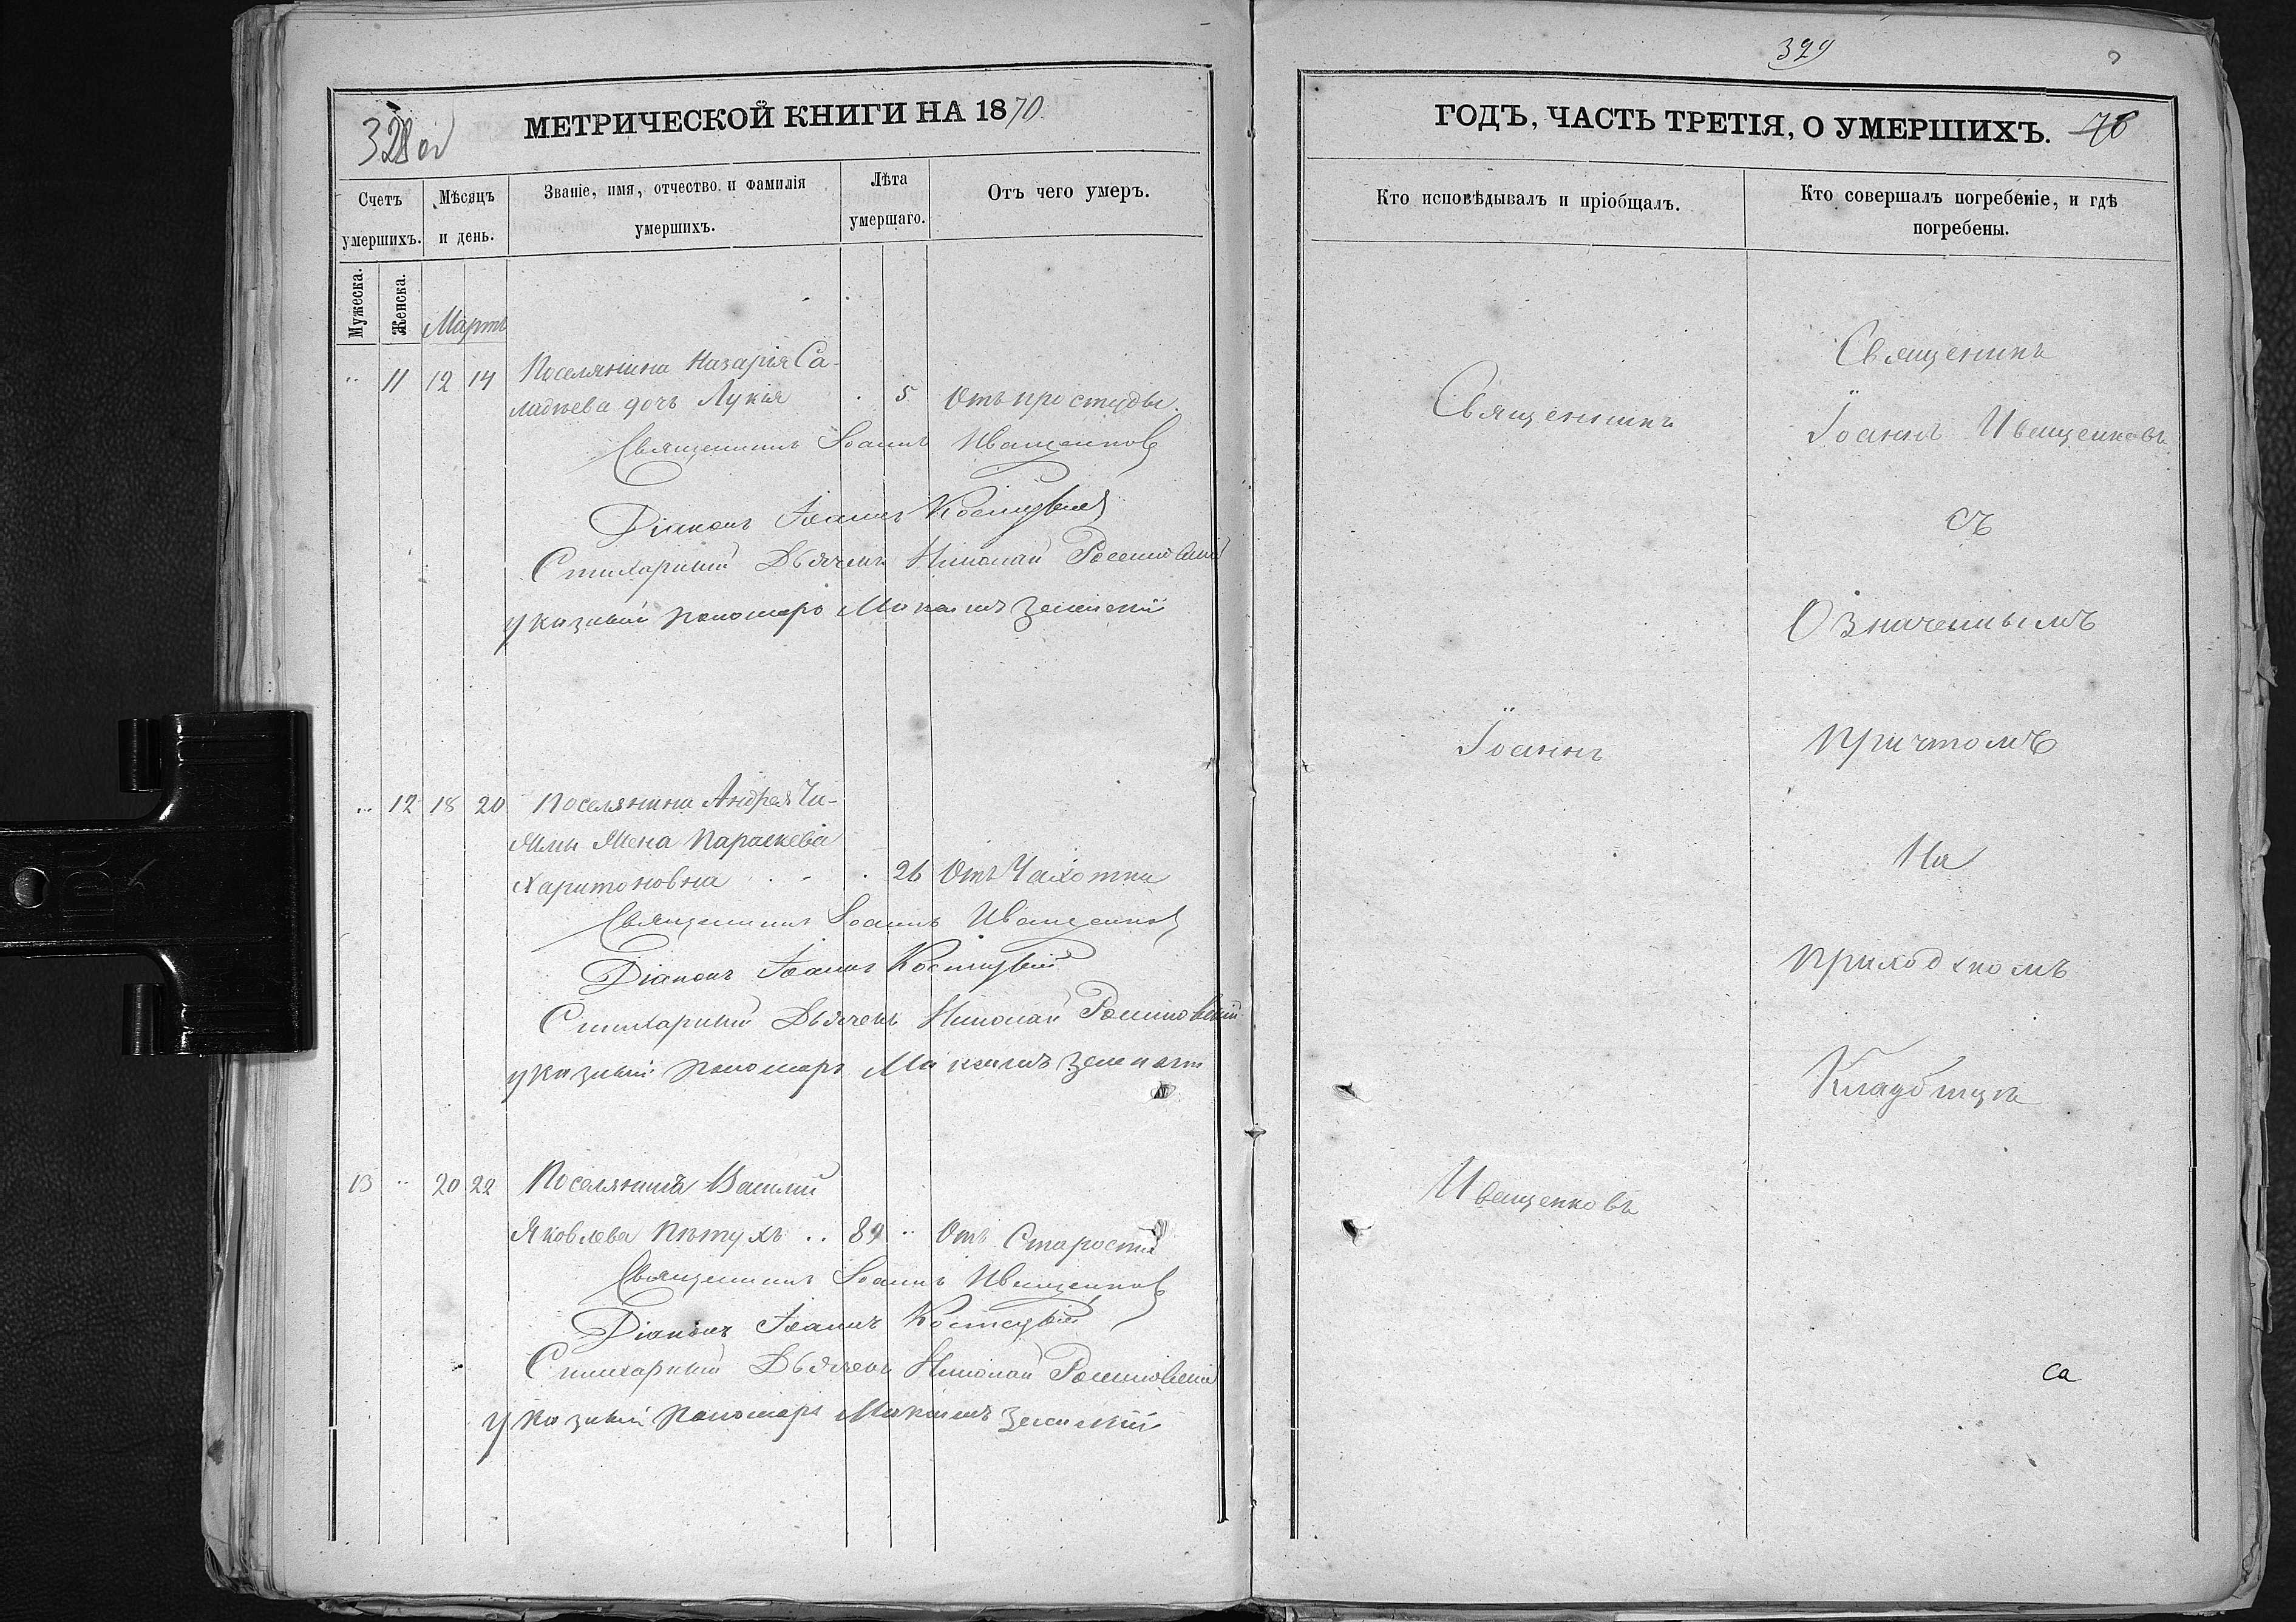 328 об
МЕТРИЧЕСКОЙ КНИГИ НА 1870.
Счетъ умершихъ.
Мѣсяцъ и день.
Званіе, имя, отчество и фамилія умершихъ.
Лѣта умершаго.
Отъ чего умеръ.
Мужеска.
Женска.
Мартъ
" 11 12 14 Поселянина Назарія Са-
дочь Лукія . 5 Отъ простуды.
Священникъ Іоаннъ Иващенковъ
Діаконъ Іоаннъ
Стихарный Дьячекъ Николай
указный пономарь Максимъ
" 12 18 20 Поселянина Андрея Чи-
жмы Жена Параскева
Харитоновна . - . 26 Отъ Чахотки
Священникъ Іоаннъ Иващенковъ
Діаконъ Іоаннъ
Стихарный Дьячекъ Николай
указный пономарь Максимъ
13 " 20 22 Поселянинъ Василій
Яковлевъ Пѣтухъ .. 89 " Отъ Старости
Священникъ Іоаннъ Иващенковъ
Діаконъ Іоаннъ
Стихарный Дьячекъ Николай
указный пономарь Максимъ
329
ГОДЪ, ЧАСТЬ ТРЕТІЯ, О УМЕРШИХЪ. 76
Кто исповѣдывалъ и пріобщалъ.
Кто совершалъ погребеніе, и гдѣ погребены.
Священникъ
Іоаннъ
Иващенковъ
Священикъ
Іоаннъ Иващенковъ
съ
Означеннымъ
причтомъ
На
приходскомъ
Кладбищѣ
са